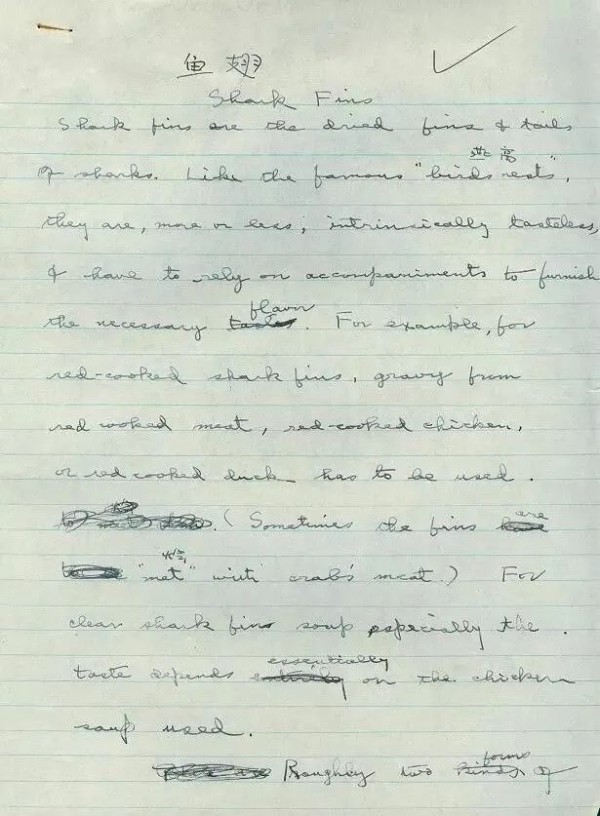 鱼翅
Shark Fins
Shark fins are the dried fins & tails
of sharks. Like the famous "birds nests",
they are, more or less, intrinsically tasteless,
& have to rely on accompaniments to furnish
the necessary flavor. For example, for
red-cooked shark fins, gravy from
red cooked meat, red-cooked chicken,
or red cooked duck has to be used.
(Sometimes the fins are
"met" with crab's meat.) For
clear shark fins soup especially the
taste depends essentially on the chicken
soup used.
Roughly two forms of